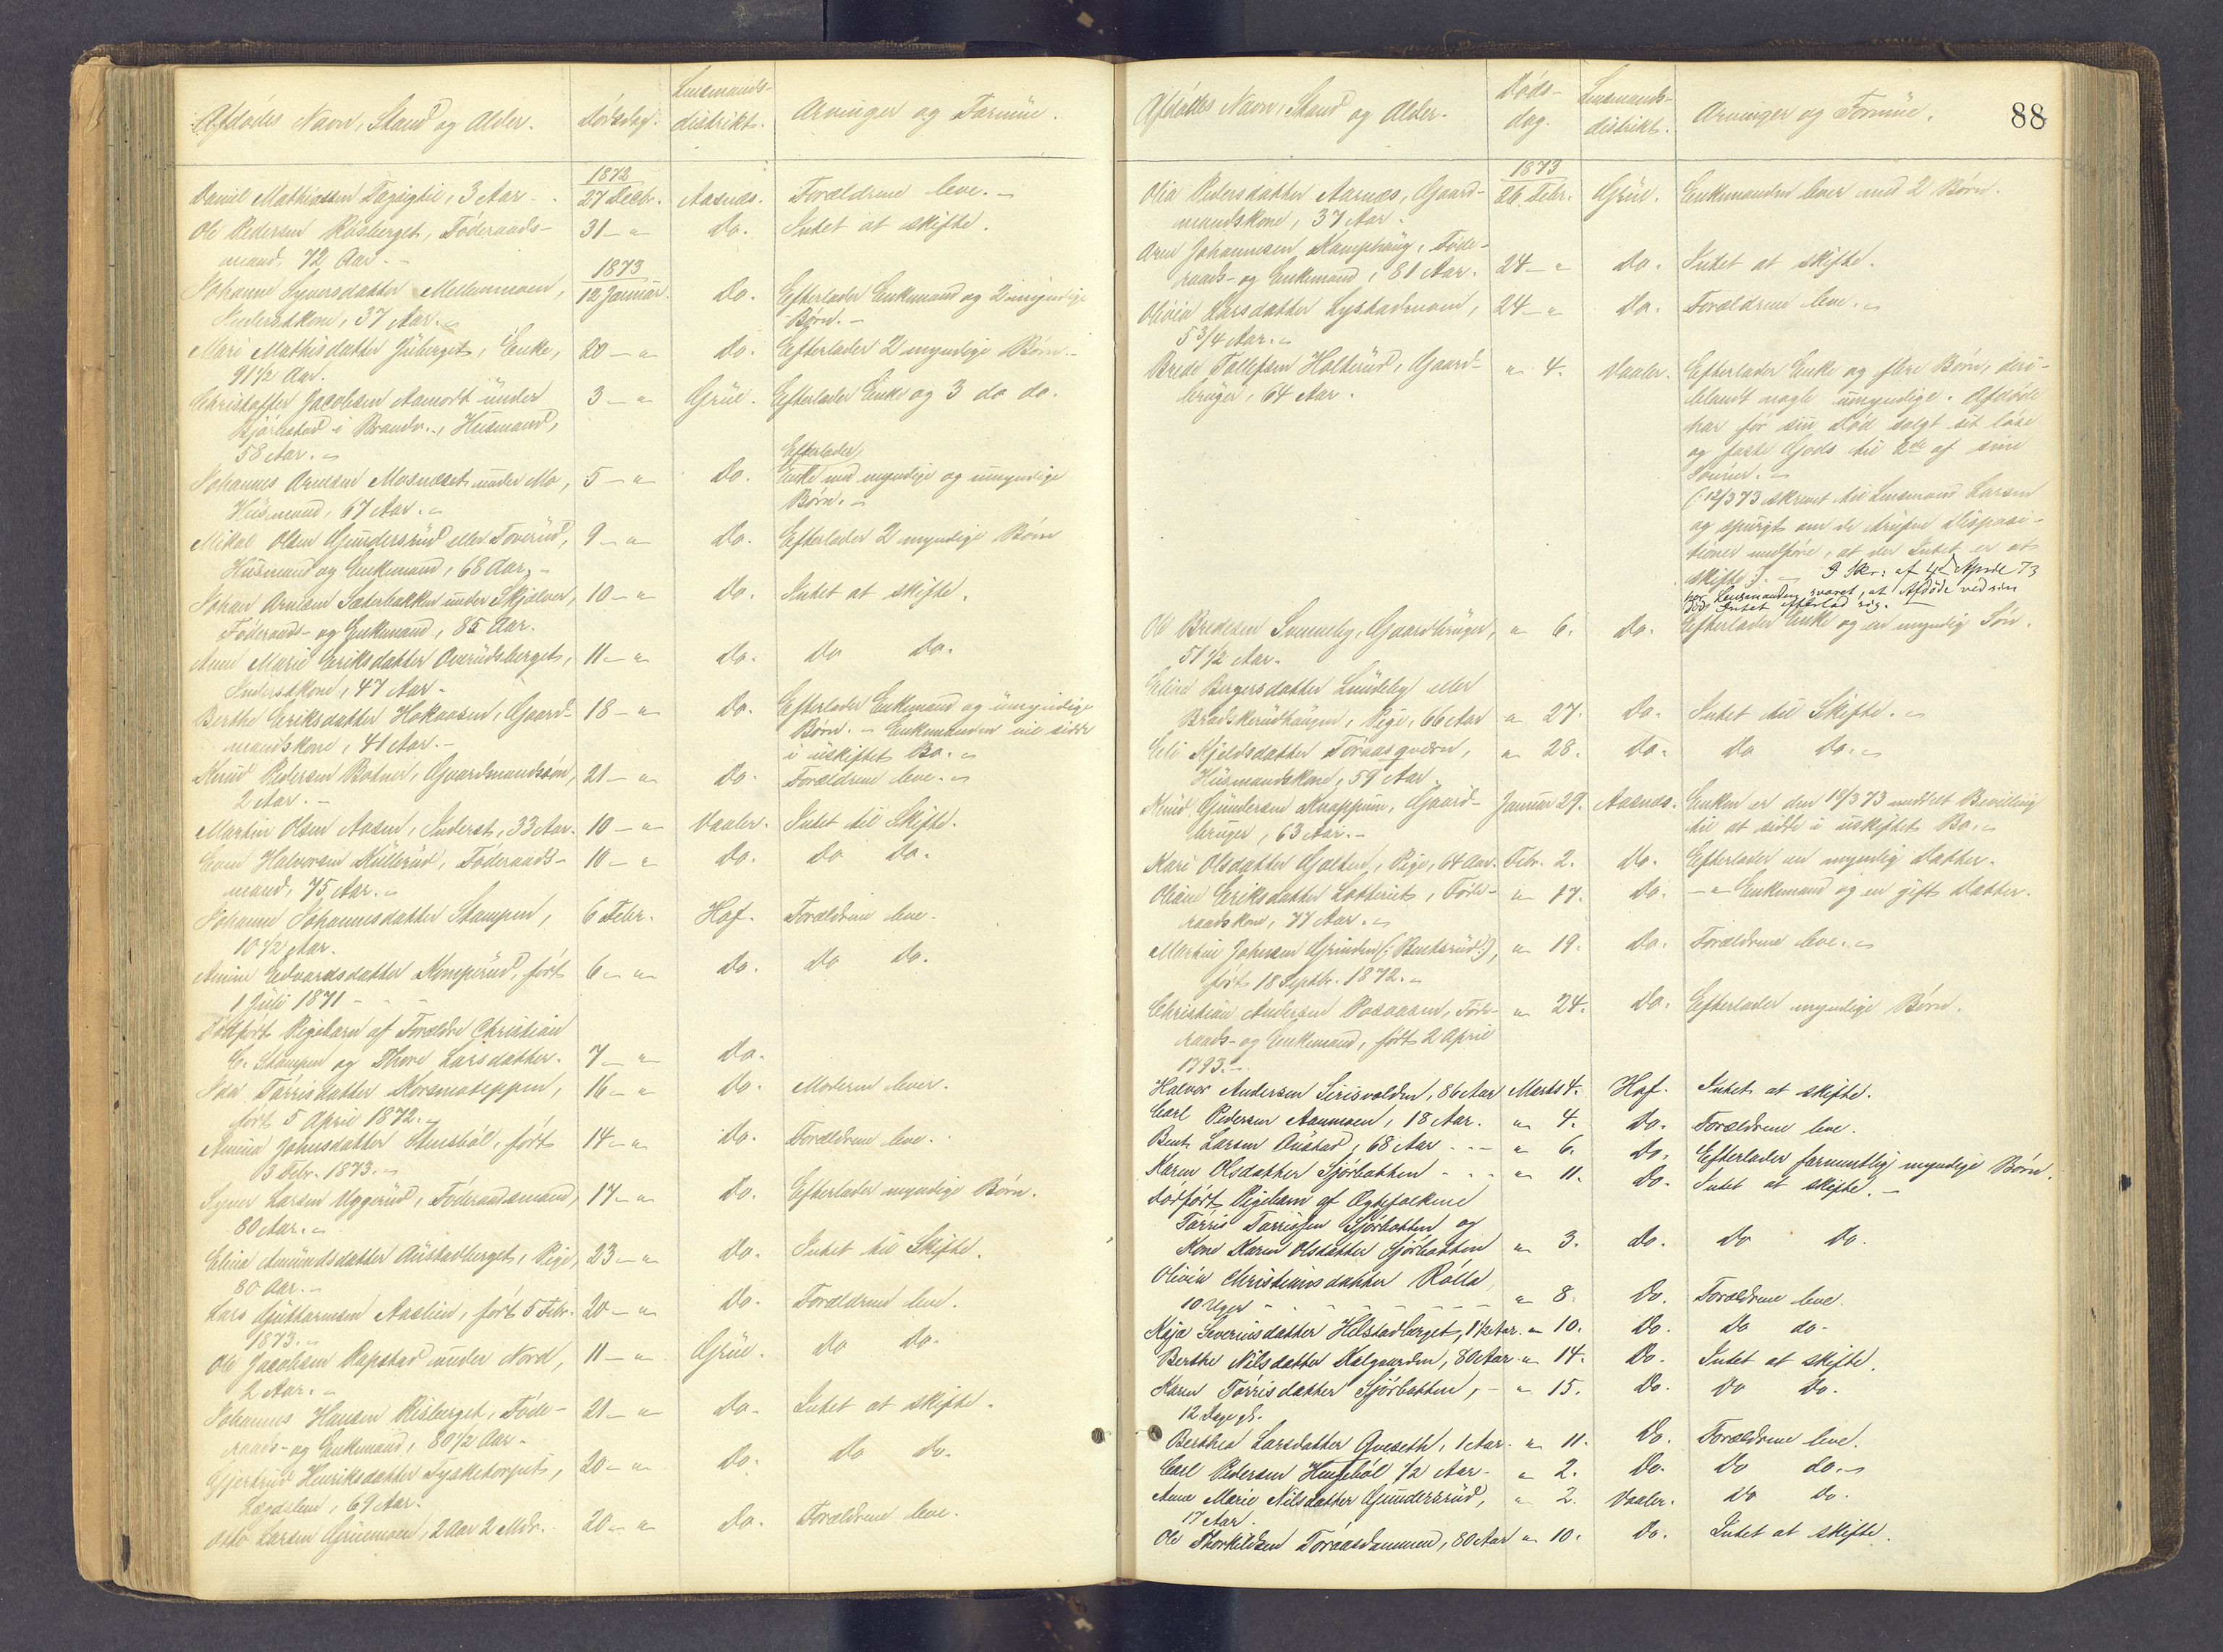 Afdødes Navn, Stand og Alder.
Dødsdag.
Lensmands-
distrikt.
Arvinger og Formue.
1872
Daniel Mathiassen Tagigtie, 3 Aar - . 27 Decbr. Aasnæs. Forældrene leve. -
Ole Pedersen Risberget, Føderaads- 31 - " Do. Intet at skifte.
mand, 72 Aar. -
1873
Johanne Syversdatter Mellemmoen, 12 Januar. Do. Efterlader Enkemand og 2 umyndige
Inderstkone, 37 Aar. Børn. -
Mari Mathisdatter Juberget, Enke, 20 - " Do. Efterlader 2 myndige Børn. -
91 1/2 Aar.
Christoffer Jacobsen Aamodt under 3 - " Grue. Efterlader Enke og 3 do do.
Bjørnstad i Brandv., Husmand,
58 Aar.
Efterlader,
Johannes Arnesen Mosnæset under Mo, 5 - " Do. Enke med myndige og umyndige
Husmand, 67 Aar. Børn.
Mikal Olsen Gundersrud eller Toverud, 9 - " Do. Efterlader 2 myndige Børn
Husmand og Enkemand, 68 Aar. -
Johan Arnesen Sæterbakken under Skjølver, 10 - " Do. Intet at skifte.
Føderaads- og Enkemand, 85 Aar.
Anne Marie Eriksdatter Overudsberget, 11 - " Do. Do Do.
Inderstkone, 47 Aar.
Berthe Eriksdatter Hokaasen, Gaard- 18 - " Do. Efterlader Enkemand og umyndige
mandskone, 41 Aar. - Børn. - Enkemanden vil sidde
i uskiftet Bo.
Knud Pedersen Botner, Gaardmandssøn, 21 - " Do. Forældrene leve.
2 Aar. -
Martin Olsen Aasen, Inderst, 33 Aar. 10 - " Vaaler. Intet til Skifte.
Even Halvorsen Kullerud, Føderaads- 10 - " Do. Do Do.
mand, 75 Aar.
Johanne Johannesdatter Stampen, 6 Febr. Hof. Forældrene leve.
10 1/2 Aar.
Amine Edvardsdatter Komperud, født 6 - " Do. Do Do.
1 Juli 1871 -
Dødfødt Pigebarn af Forældre Christian
C. Stampen og Thore Larsdatter. 7 - " Do.
Ida Tørrisdatter Korsmoteppen, 16 - " Do. Moderen lever.
født 5 April 1872.
Amina Johnsdatter Skusbøl, født 14 - " Do. Forældrene leve.
13 Febr. 1873.
Syver Larsen Uggerud, Føderaadsmand, 17 - " Do. Efterlader myndige Børn.
80 Aar.
Elina Amundsdatter Austadberget, Pige, 23 - " Do. Intet til Skifte.
80 Aar. -
Lars Guttormsen Aaslien, født 5 Febr. 20 - " Do. Forældrene leve.
1873.
Ole Jacobsen Rapstad under Nord, 11 - " Grue. Do Do.
2 Aar.
Johannes Hansen Risberget, Føde- 21 - " Do. Intet at skifte.
raads- og Enkemand, 80 1/2 Aar.
Gjertrud Henriksdatter Tysketorpet, 20 - " Do. Do Do.
Lægdslem, 69 Aar.
Otto Larsen Gruemoen, 2 Aar 2 Mdr. 20 - " Do. Forældrene leve.
88
Afdødes Navn, Stand og Alder.
Døds-
dag.
Lensmands-
distrikt.
Arvinger og Formue.
1873
Olia Pedersdatter Aarnæs, Gaard- 26 Febr. Grue. Enkemanden lever med 2 Børn.
mandskone, 37 Aar.
Arne Johannesen Kamphaug, Føde-
raads- og Enkemand, 81 Aar. 24 - " Do. Intet at skifte.
Olivia Larsdatter Lystadmoen, 24 - " Do. Forældrene leve.
5 3/4 Aar.
Brede Tollefsen Halterud, Gaard- " 4. Vaaler. Efterlader Enke og flere Børn, deri-
bruger, 64 Aar. blandt nogle umyndige. Afdøde
har før sin Død solgt sit løse
og faste Gods til 2de af sine
Sønner.
(: 12/3 73 skrevet til Lensmand Larsen
og spurgt om de trufne Disposi-
tioner medføre, at der Intet er at
skifte :). - I Skr: af 4de April 73
har Lensmanden svaret, at Afdøde ved sin
Død Intet efterlod sig. -
Ole Bredesen Svenneby, Gaardbruger, " 6. Do. Efterlader Enke og en myndig Søn.
51 1/2 Aar.
Eline Bergersdatter Lundeby eller
Bradskerudhaugen, Pige, 66 Aar " 27. Do. Intet til Skifte.
Eli Kjeldsdatter Toraasqværn, " 28. Do. Do Do.
Husmandskone, 59 Aar.
Knud Gundersen Knappum, Gaard- Januar 29. Aasnæs. Enken er den 18/3 73 meddelt Bevilling
bruger, 63 Aar. - til at sidde i uskiftet Bo.
Kari Olsdatter Galten, Pige, 64 Aar. Febr. 2. Do. Efterlader en myndig Datter.
Oliane Eriksdatter Lotterud, Føde- " 17. Do. - " Enkemand og en gift Datter.
raadskone, 77 Aar.
Martin Johnsen Grinden (: Bentsrud :), " 19. Do. Forældrene leve.
født 18 Septbr. 1872.
Christian Andersen Posaasen, Føde- " 24. Do. Efterlader myndige Børn.
raads- og Enkemand, født 2 April
1793.
Halvor Andersen Sirisvolden, 86 Aar Marts 4. Hof. Intet at skifte.
Carl Pedersen Aanmoen, 18 Aar. " 4. Do. Forældrene leve.
Bent Larsen Austad, 68 Aar - - - " 6. Do. Efterlader formentlig myndige Børn.
Karen Olsdatter Sjørbotten - - - " 11. Do. Intet at skifte. -
Dødfødt Pigebarn af Ægtefolkene
Tørris Tørrissen Sjørbotten og
Kone Karen Olsdatter Sjørbotten " 3. Do. Do Do.
Olivia Christiansdatter Rølla
10 Uger - - - - - - - " 8. Do. Forældrene leve.
Kaja Severinsdatter Helstadberget, 1 1/2 Aar. " 10. Do. Do do.
Berthe Nilsdatter Kalgaarden, 80 Aar " 14. Do. Intet at skifte.
Karen Tørrisdatter Sjørbotten, - " 15. Do. Do Do.
12 Dage gl.
Berthea Larsdatter Qveseth, 1 Aar. " 11. Do. Forældrene leve.
Carl Pedersen Huusebøl 1/2 Aar - " 2. Do. Do do.
Anne Marie Nilsdatter Gundersrud, " 2. Vaaler. Do Do.
17 Aar.
Ole Thorkildsen Toraasdammen, 80 Aar " 10. Do. Intet at skifte.